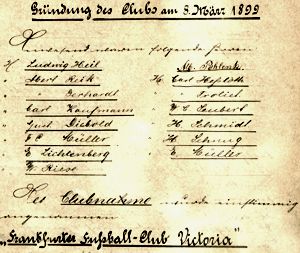 Gründung des Clubs am 8. März 1899
Anwesend waren folgende Herren
H Ludwig Heil
Albert Reik
" Gerhardt
" Carl Kaufmann
" Gust. Diebold
" F C Müller
" E Lichtenberg
" W. Riese
H. Carl Hofloth
" Frölich
" W. C. Seubert
" H. Schmidt
" H. Schnug
" E. Müller
Der Clubname wurde einstimmig
angenommen
„Frankfurter Fussball-Club Victoria"